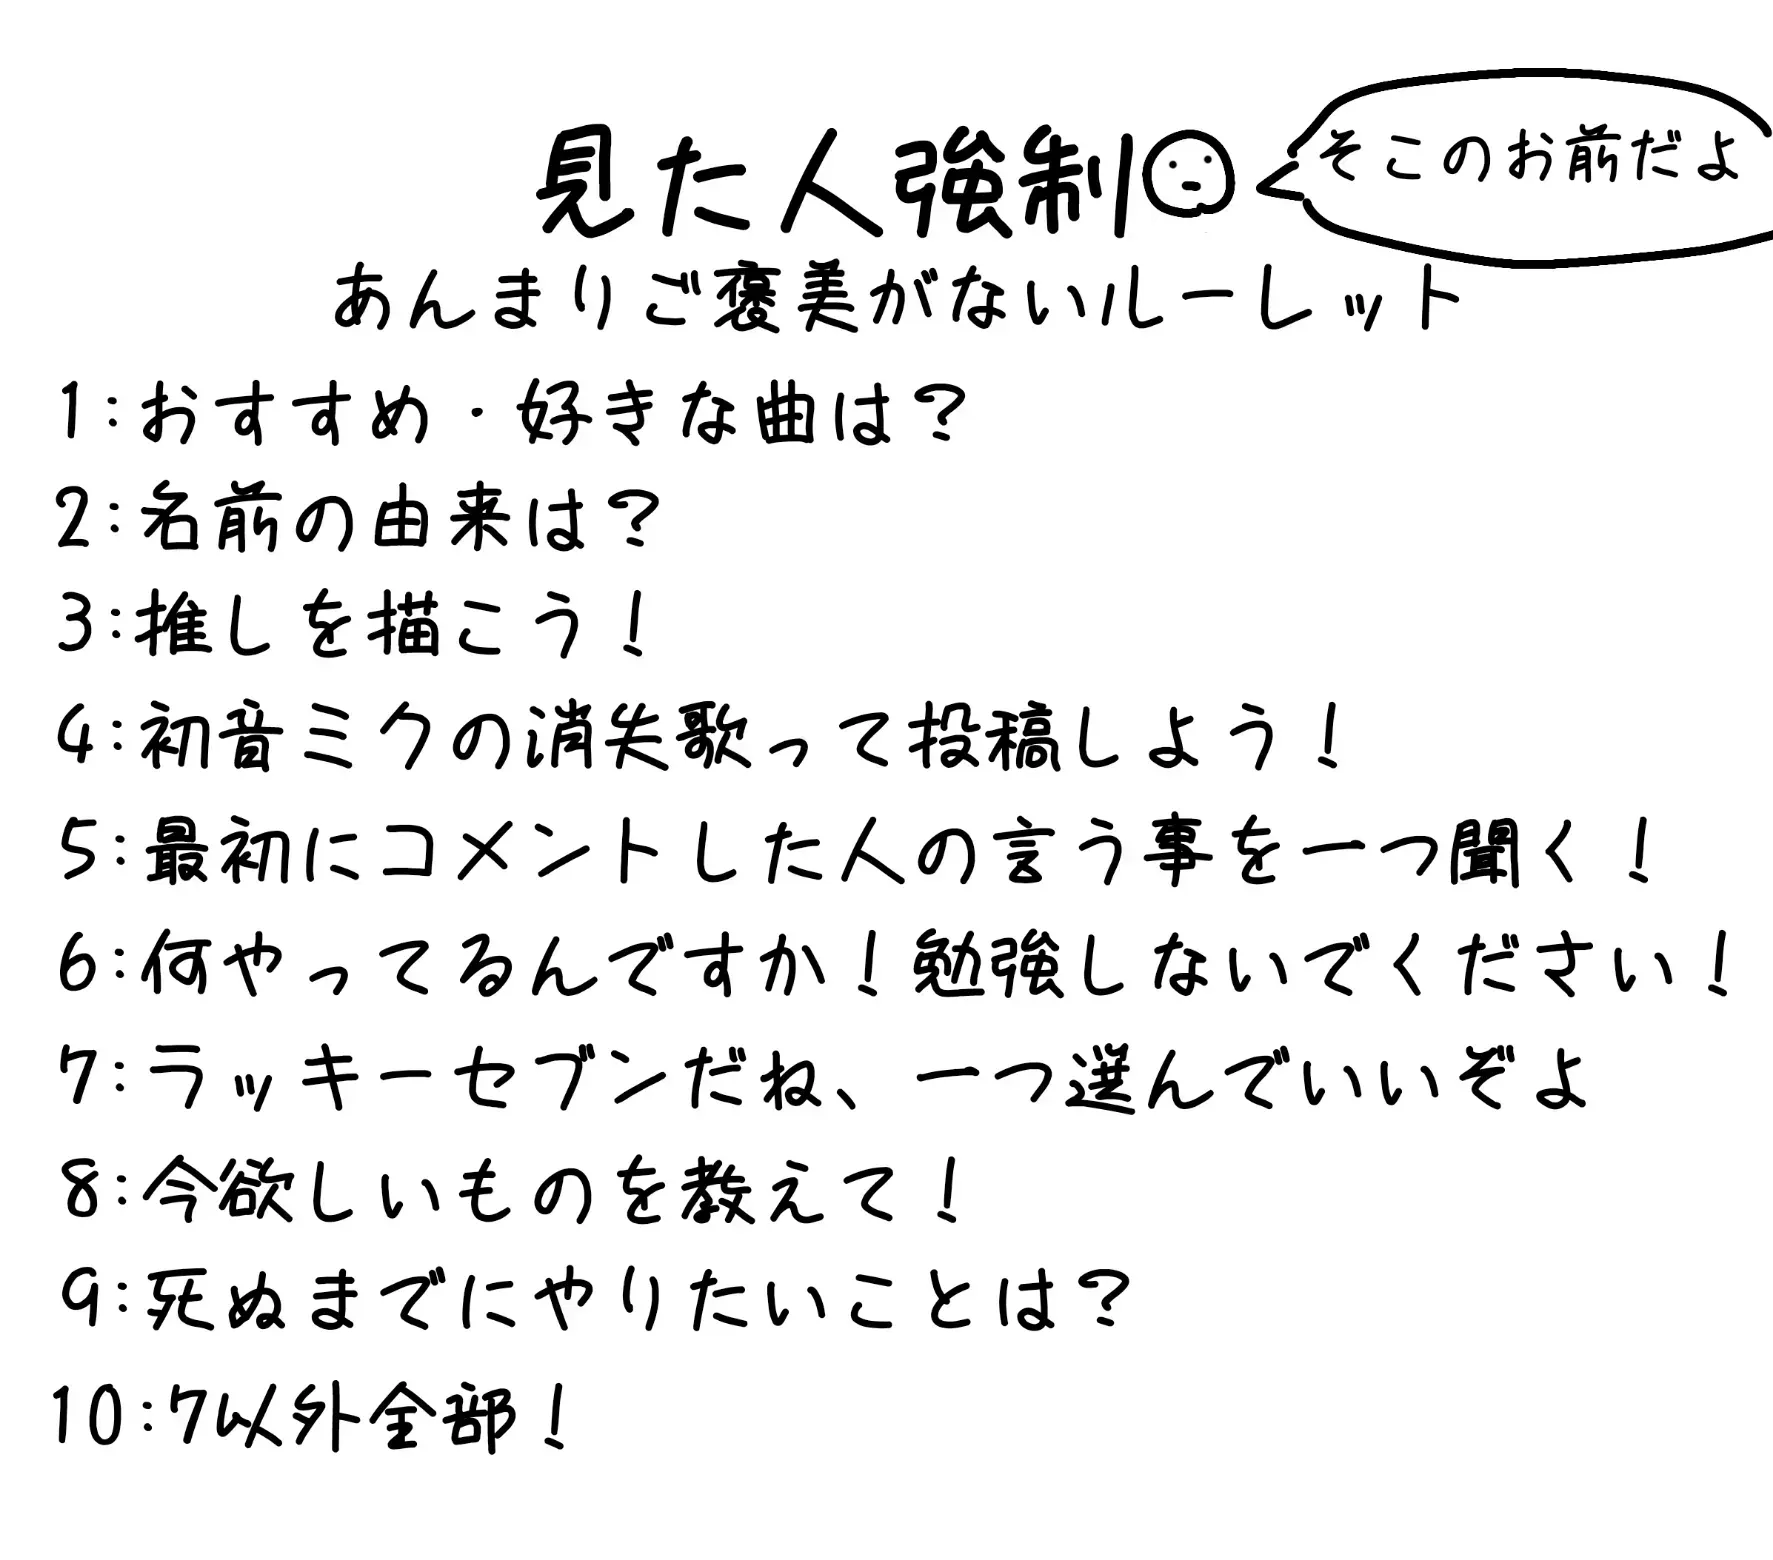 見た人強制
そこのお前だよ
あんまりご褒美がないルーレット
1:おすすめ・好きな曲は?
2:名前の由来は?
3:推しを描こう!
4:初音ミクの消失歌って投稿しよう!
5:最初にコメントした人の言う事を一つ聞く!
6:何やってるんですか!勉強しないでください!
7:ラッキーセブンだね、一つ選んでいいぞよ
8:今欲しいものを教えて!
9:死ぬまでにやりたいことは?
10:7以外全部!